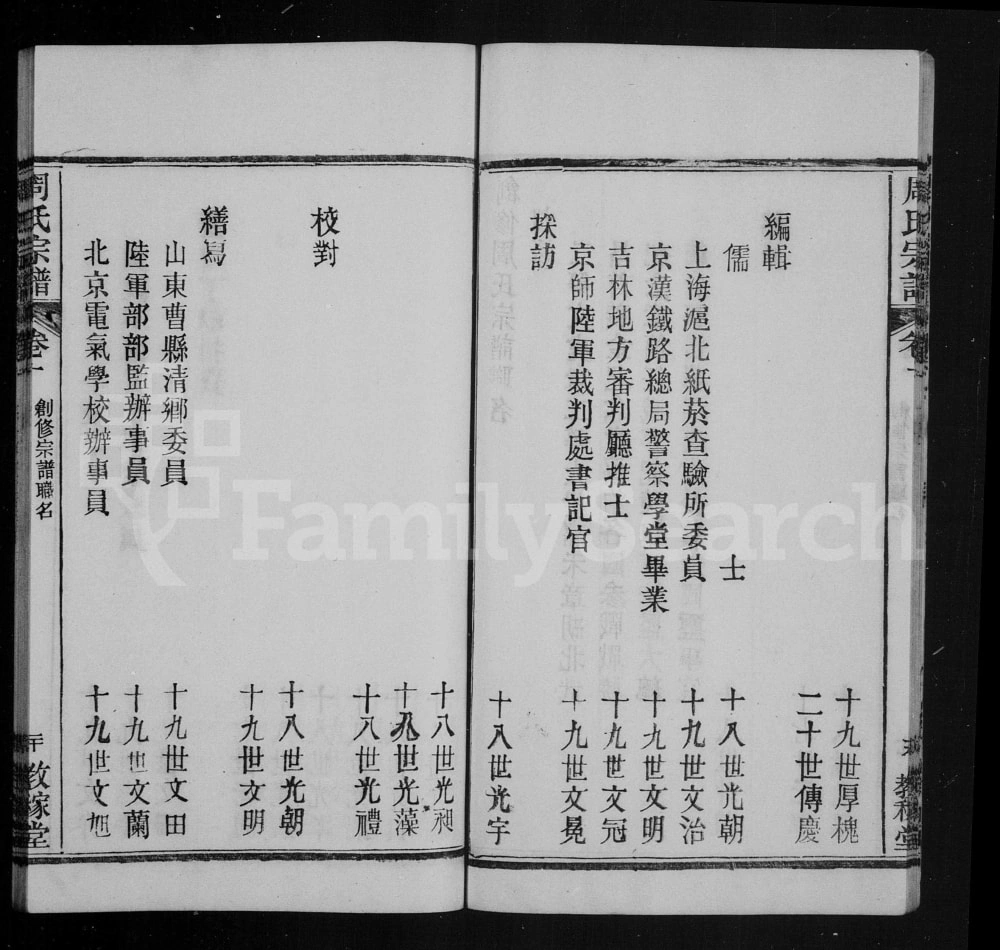 周氏宗譜
卷一
教稼堂
十九世厚槐
二十世傳慶
編輯
儒 士 十八世光朝
上海滬北紙菸查驗所委員 十九世文治
京漢鐵路總局警察學堂畢業 十九世文明
吉林地方審判廳推士 十九世文冠
京師陸軍裁判處書記官 十九世文晃
採訪
十八世光宇
十八世光昶
十八世光藻
十八世光禮
校對
十八世光朝
十九世文明
繕寫
山東曹縣清鄉委員 十九世文田
陸軍部部監辦事員 十九世文蘭
北京電氣學校辦事員 十九世文旭
周氏宗譜
卷一
創修宗譜聯名
教稼堂
FamilySearch